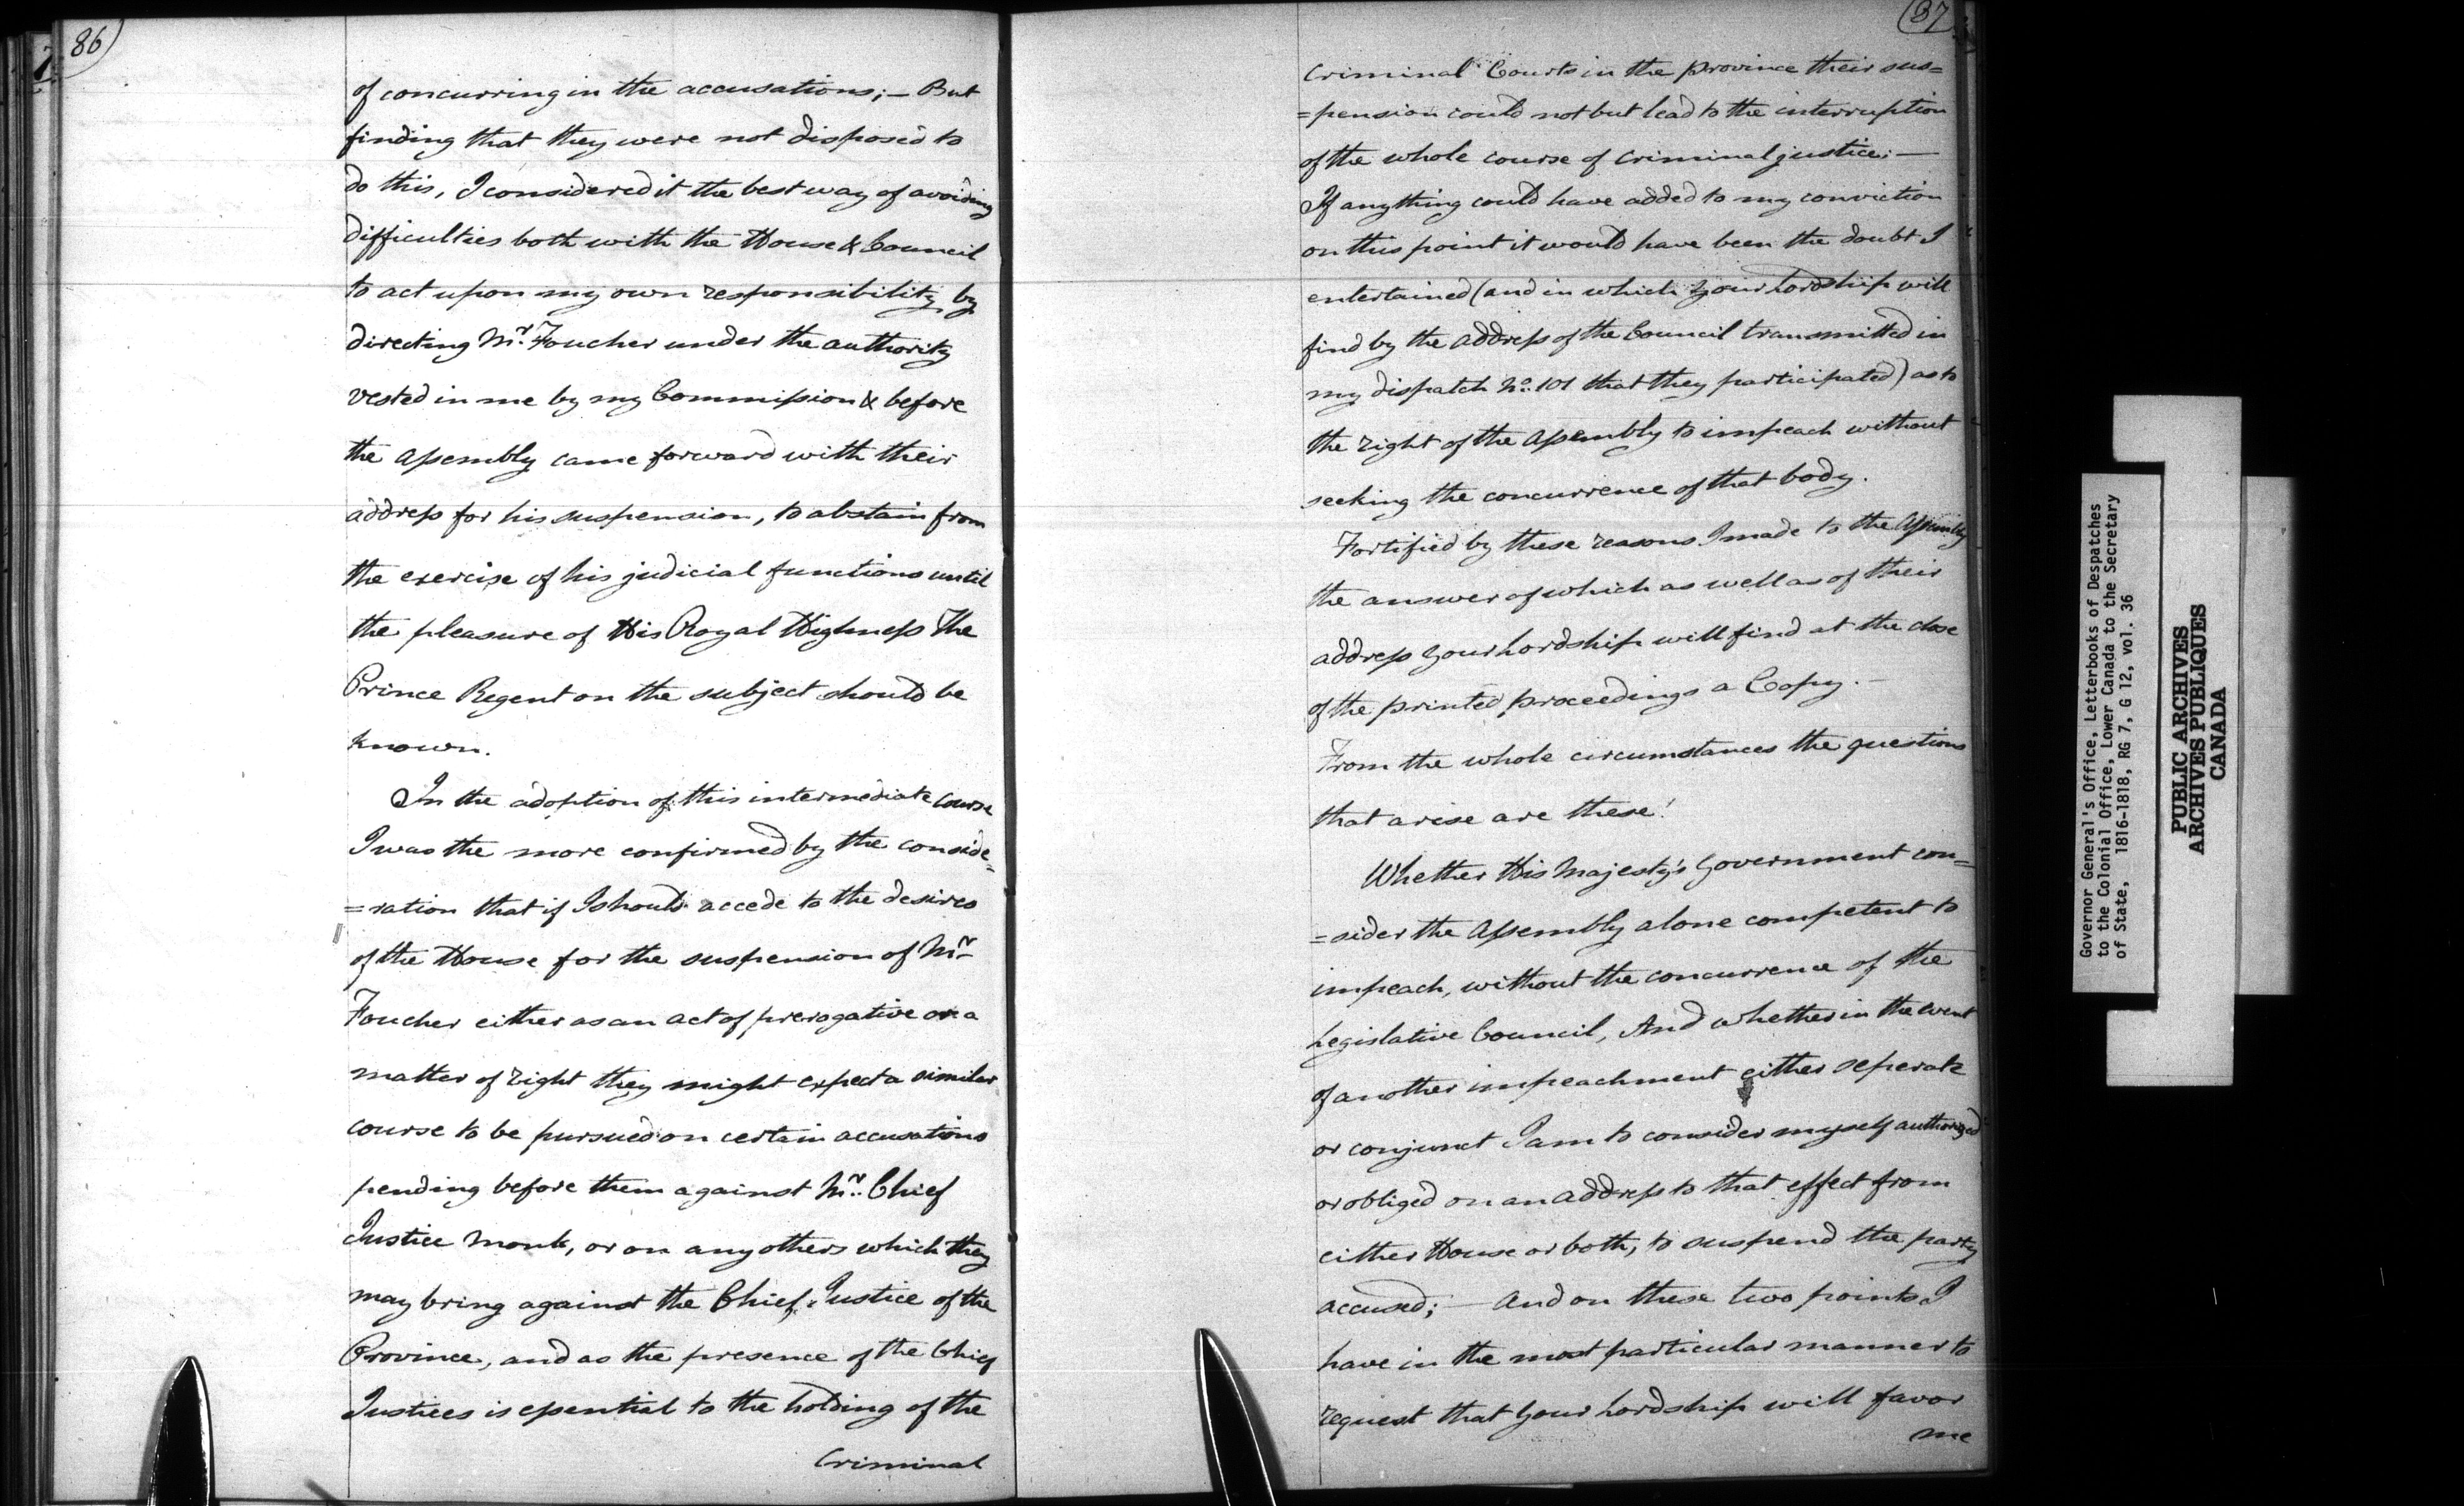 86
of concurring in the accusations; — But
finding that they were not disposed to
do this, I considered it the best way of avoiding
difficulties both with the House & Council
to act upon my own responsibility by
directing Mr. Foucher under the authority
vested in me by my Commission & before
the Assembly came forward with their
address for his suspension, to abstain from
the exercise of his judicial functions until
the pleasure of His Royal Highness The
Prince Regent on the subject should be
known.
In the adoption of this intermediate course
I was the more confirmed by the conside=
=ration that if I should accede to the desires
of the House for the suspension of Mr
Foucher either as an act of prerogative or a
matter of right they might expect a similar
course to be pursued on certain accusations
pending before them against Mr. Chief
Justice Monk, or on any others which they
may bring against the Chief Justice of the
Province, and as the presence of the Chief
Justices is essential to the holding of the
Criminal
87
Criminal Courts in the province their sus=
=pension could not but lead to the interruption
of the whole course of criminal justice; —
If anything could have added to my conviction
on this point it would have been the doubt I
entertained (and in which your Lordship will
find by the address of the Council transmitted in
my dispatch No. 101 that they participated) as to
the right of the Assembly to impeach without
seeking the concurrence of that body.
Fortified by these reasons I made to the Assembly
the answer of which as well as of their
address your Lordship will find at the close
of the printed proceedings a Copy. —
From the whole circumstances the questions
that arise are these!
Whether His Majesty's Government con=
=sider the Assembly alone competent to
impeach, without the concurrence of the
Legislative Council, And whether in the event
of another impeachment either seperate
or conjunct I am to consider myself authorized
or obliged on an address to that effect from
either House or both, to suspend the party
accused; — And on these two points I
have in the most particular manner to
request that Your Lordship will favor
me
Governor General's Office, Letterbooks of Despatches
to the Colonial Office, Lower Canada to the Secretary
of State, 1816-1818, RG 7, G 12, vol. 36
PUBLIC ARCHIVES
ARCHIVES PUBLIQUES
CANADA